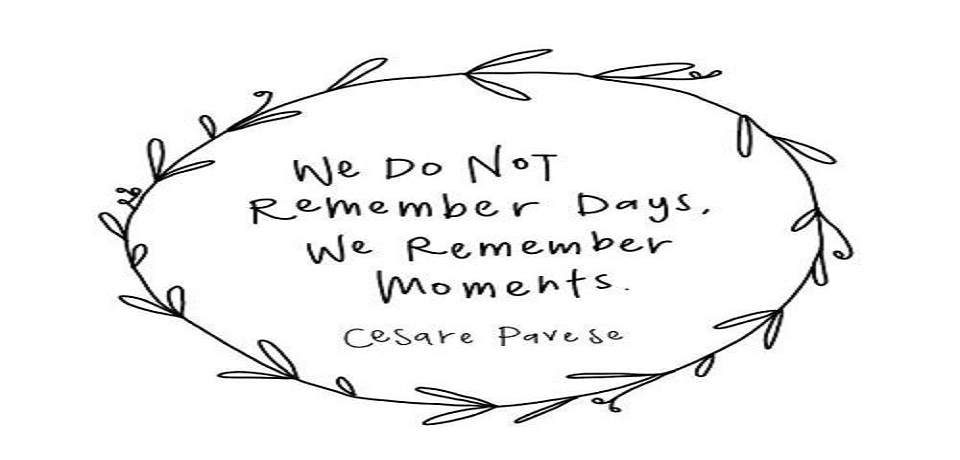 We Do Not
Remember Days,
We Remember
Moments.
Cesare Pavese